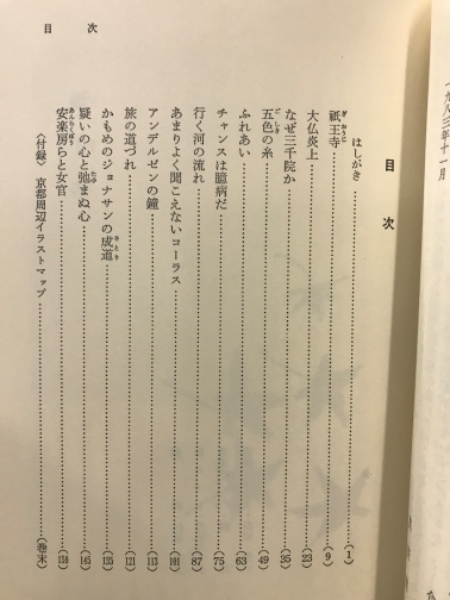 一九八三年十一月
目次
はしがき……(1)
祇王寺……(9)
大仏炎上……(23)
なぜ三千院か……(35)
五色の糸……(49)
ふれあい……(63)
チャンスは臆病だ……(75)
行く河の流れ……(87)
あまりよく聞こえないコーラス……(101)
アンデルゼンの鐘……(113)
旅の道づれ……(121)
かもめのジョナサンの成道……(135)
疑いの心と弛まぬ心……(145)
安楽房らと女官……(159)
〈付録〉 京都周辺イラストマップ……(巻末)
目次